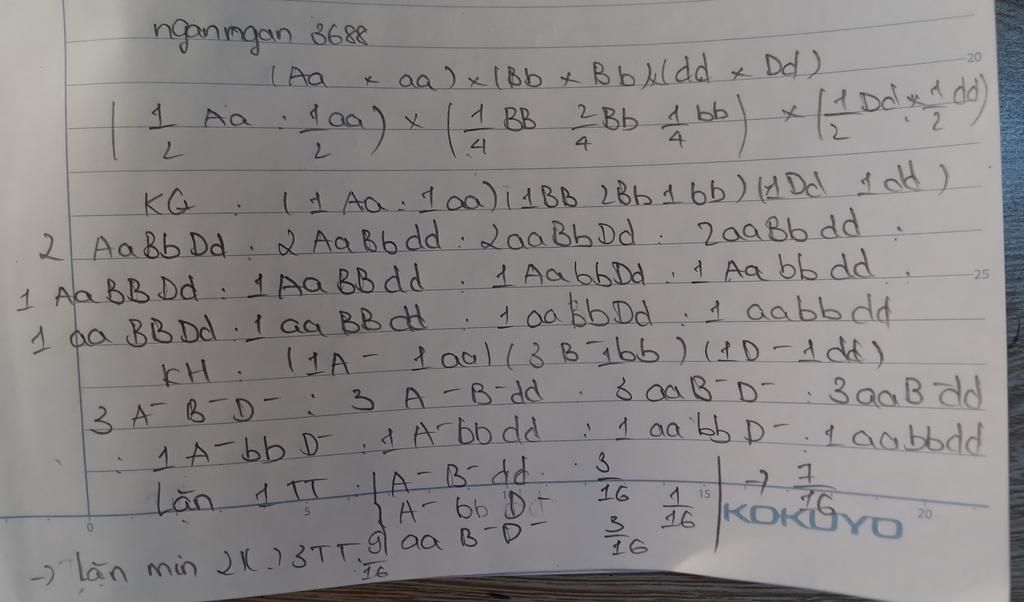 nganmgan 3688
(Aa × aa) × (Bb × Bb) × (dd × Dd)
(1/2 Aa : 1/2 aa) × (1/4 BB 2/4 Bb 1/4 bb) × (1/2 Dd : 1/2 dd)
KG : (1 Aa : 1aa) (1BB 2Bb 1bb) (1Dd 1dd)
2 AaBbDd : 2 AaBbdd : 2aaBbDd : 2aaBbdd :
1 AaBBDd : 1AaBBdd : 1 AabbDd : 1 Aabbdd :
1 aaBBDd : 1 aaBBdd : 1 aabbDd : 1 aabbdd
KH : (1A- 1aa) (3B-1bb) (1D-1dd)
3 A-B-D- : 3 A-B-dd : 3 aaB-D- : 3aaB-dd
: 1A-bbD- : 1A-bbdd : 1 aabbD- : 1aabbdd
Lặn 1TT : { A-B-dd : 3/16
A-bbD- 1/16 → 7/16
aaB-D- 3/16
→ lặn min 2 3TT 9/16
20
25
0
5
15
20
KOKUYO